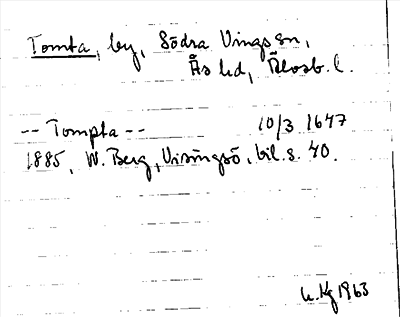 Tomta, by, Södra Vings sn,
Ås hd, Älvsb. l.
-- Tompta -- 10/3 1647
1885, W. Berg, Visingsö, bil. s. 40.
U. Kg 1963